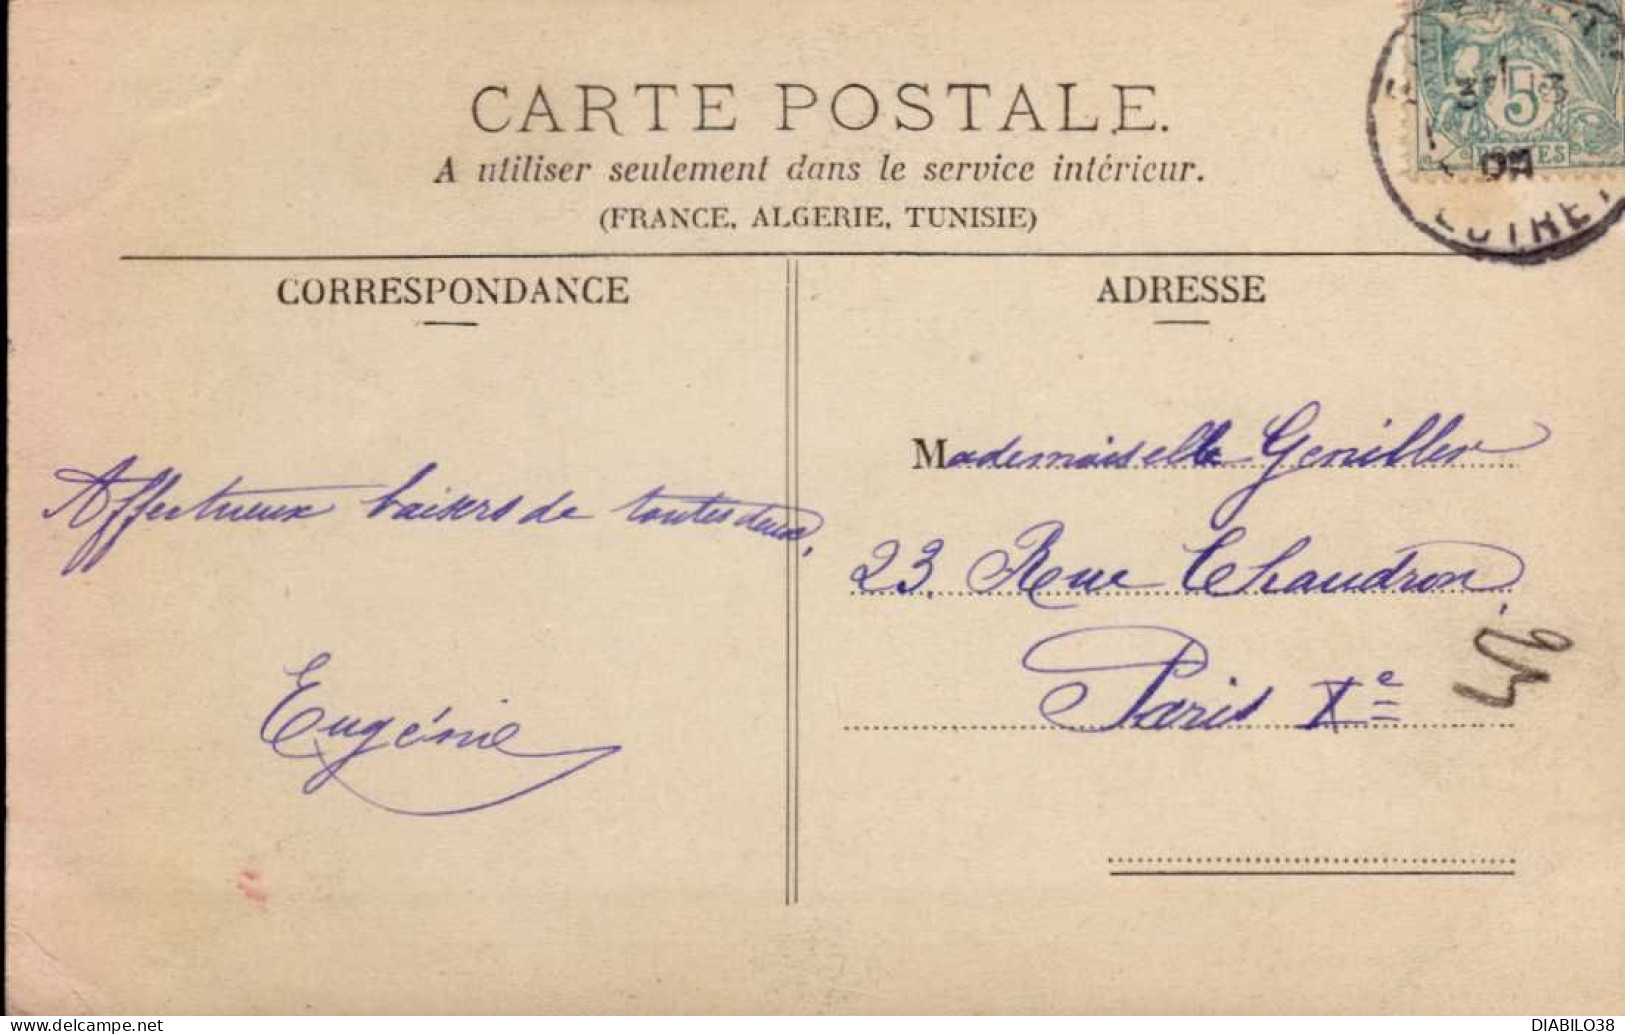 CARTE POSTALE.
A utiliser seulement dans le service intérieur.
(FRANCE, ALGERIE, TUNISIE)
5
POSTES
LOIRET
CORRESPONDANCE
Affectueux baisers de toutes deux,
Eugénie
ADRESSE
Mademoiselle Geniller
23, Rue Chaudron,
Paris Xe
DIABILO38